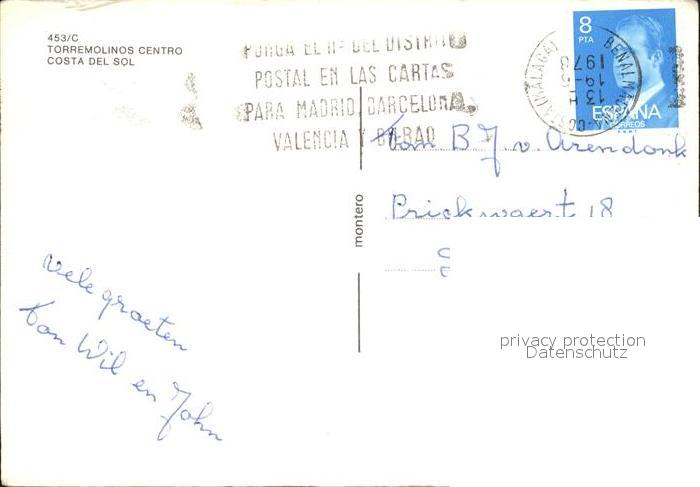 453/C
TORREMOLINOS CENTRO
COSTA DEL SOL
PONGA EL Nº DEL DISTRITO
POSTAL EN LAS CARTAS
PARA MADRID, BARCELONA,
VALENCIA Y BILBAO
8
PTA
ESPAÑA
CORREOS
13 H
19-5
1978
fam B J. v. Arendonk
Prickwaert 18
montero
vele groeten
van Wil en John
privacy protection
Datenschutz